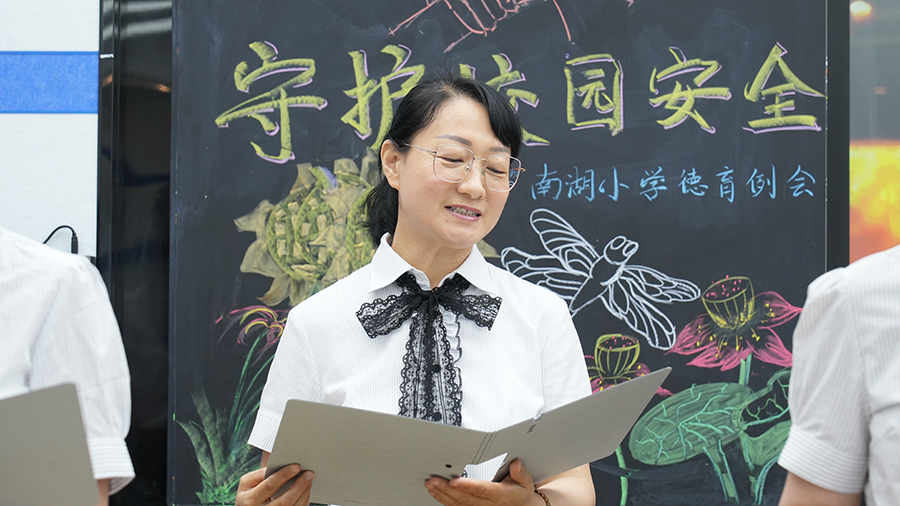 守护校园安全
南湖小学德育例会